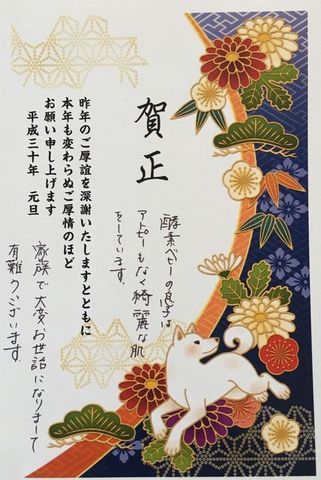 賀正
昨年のご厚誼を深謝いたしますとともに
本年も変わらぬご厚情のほど
お願い申し上げます
平成三十年　元旦
酵素ベビーの息子は
アトピーもなく綺麗な肌
をしています。
家族で大変お世話になりまして
有難うございます。